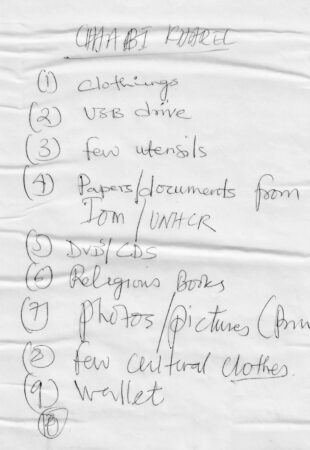 CHAABI KHAREL
(1) clothings
(2) USB drive
(3) few utensils
(4) Papers/documents from
Iom/UNHCR
(5) DVD's/CDS
(6) Religious Books
(7) Photos/pictures (
(8) few cultural clothes.
(9) wallet
(10)